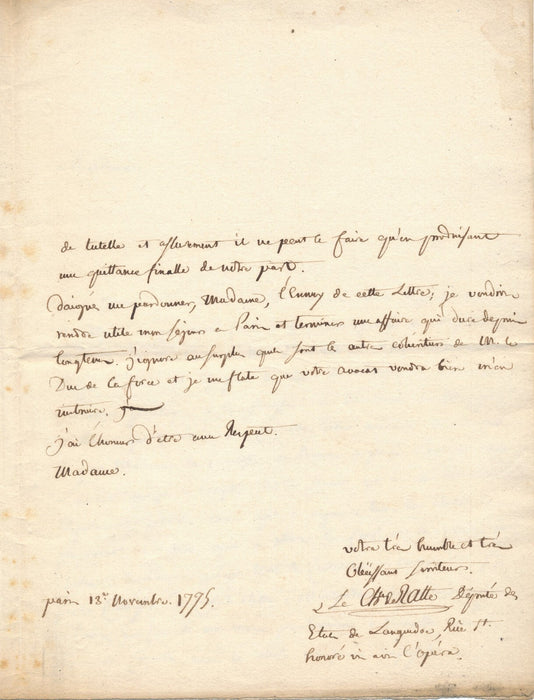 de tutelle et assurement il ne peut le faire qu'en produisant
une quittance finalle de votre part.
daignés me pardonner, Madame, l'Ennuy de cette Lettre; je voudrois
rendre utile mon séjour a Paris et terminer une affaire qui dure depuis
longtems. j'ignore au surplus quels sont les autres cohéritiers de M. le
Duc de la force et je me flate que votre avocat voudra bien m'en
instruire.
j'ai l'honneur d'etre avec Respect.
Madame.
votre très humble et très
Obéissant serviteur.
Le Ch. de Ratte Député des
paris 18 Novembre 1775.
Etats de Languedoc, Rüe St.
honoré l'opéra.